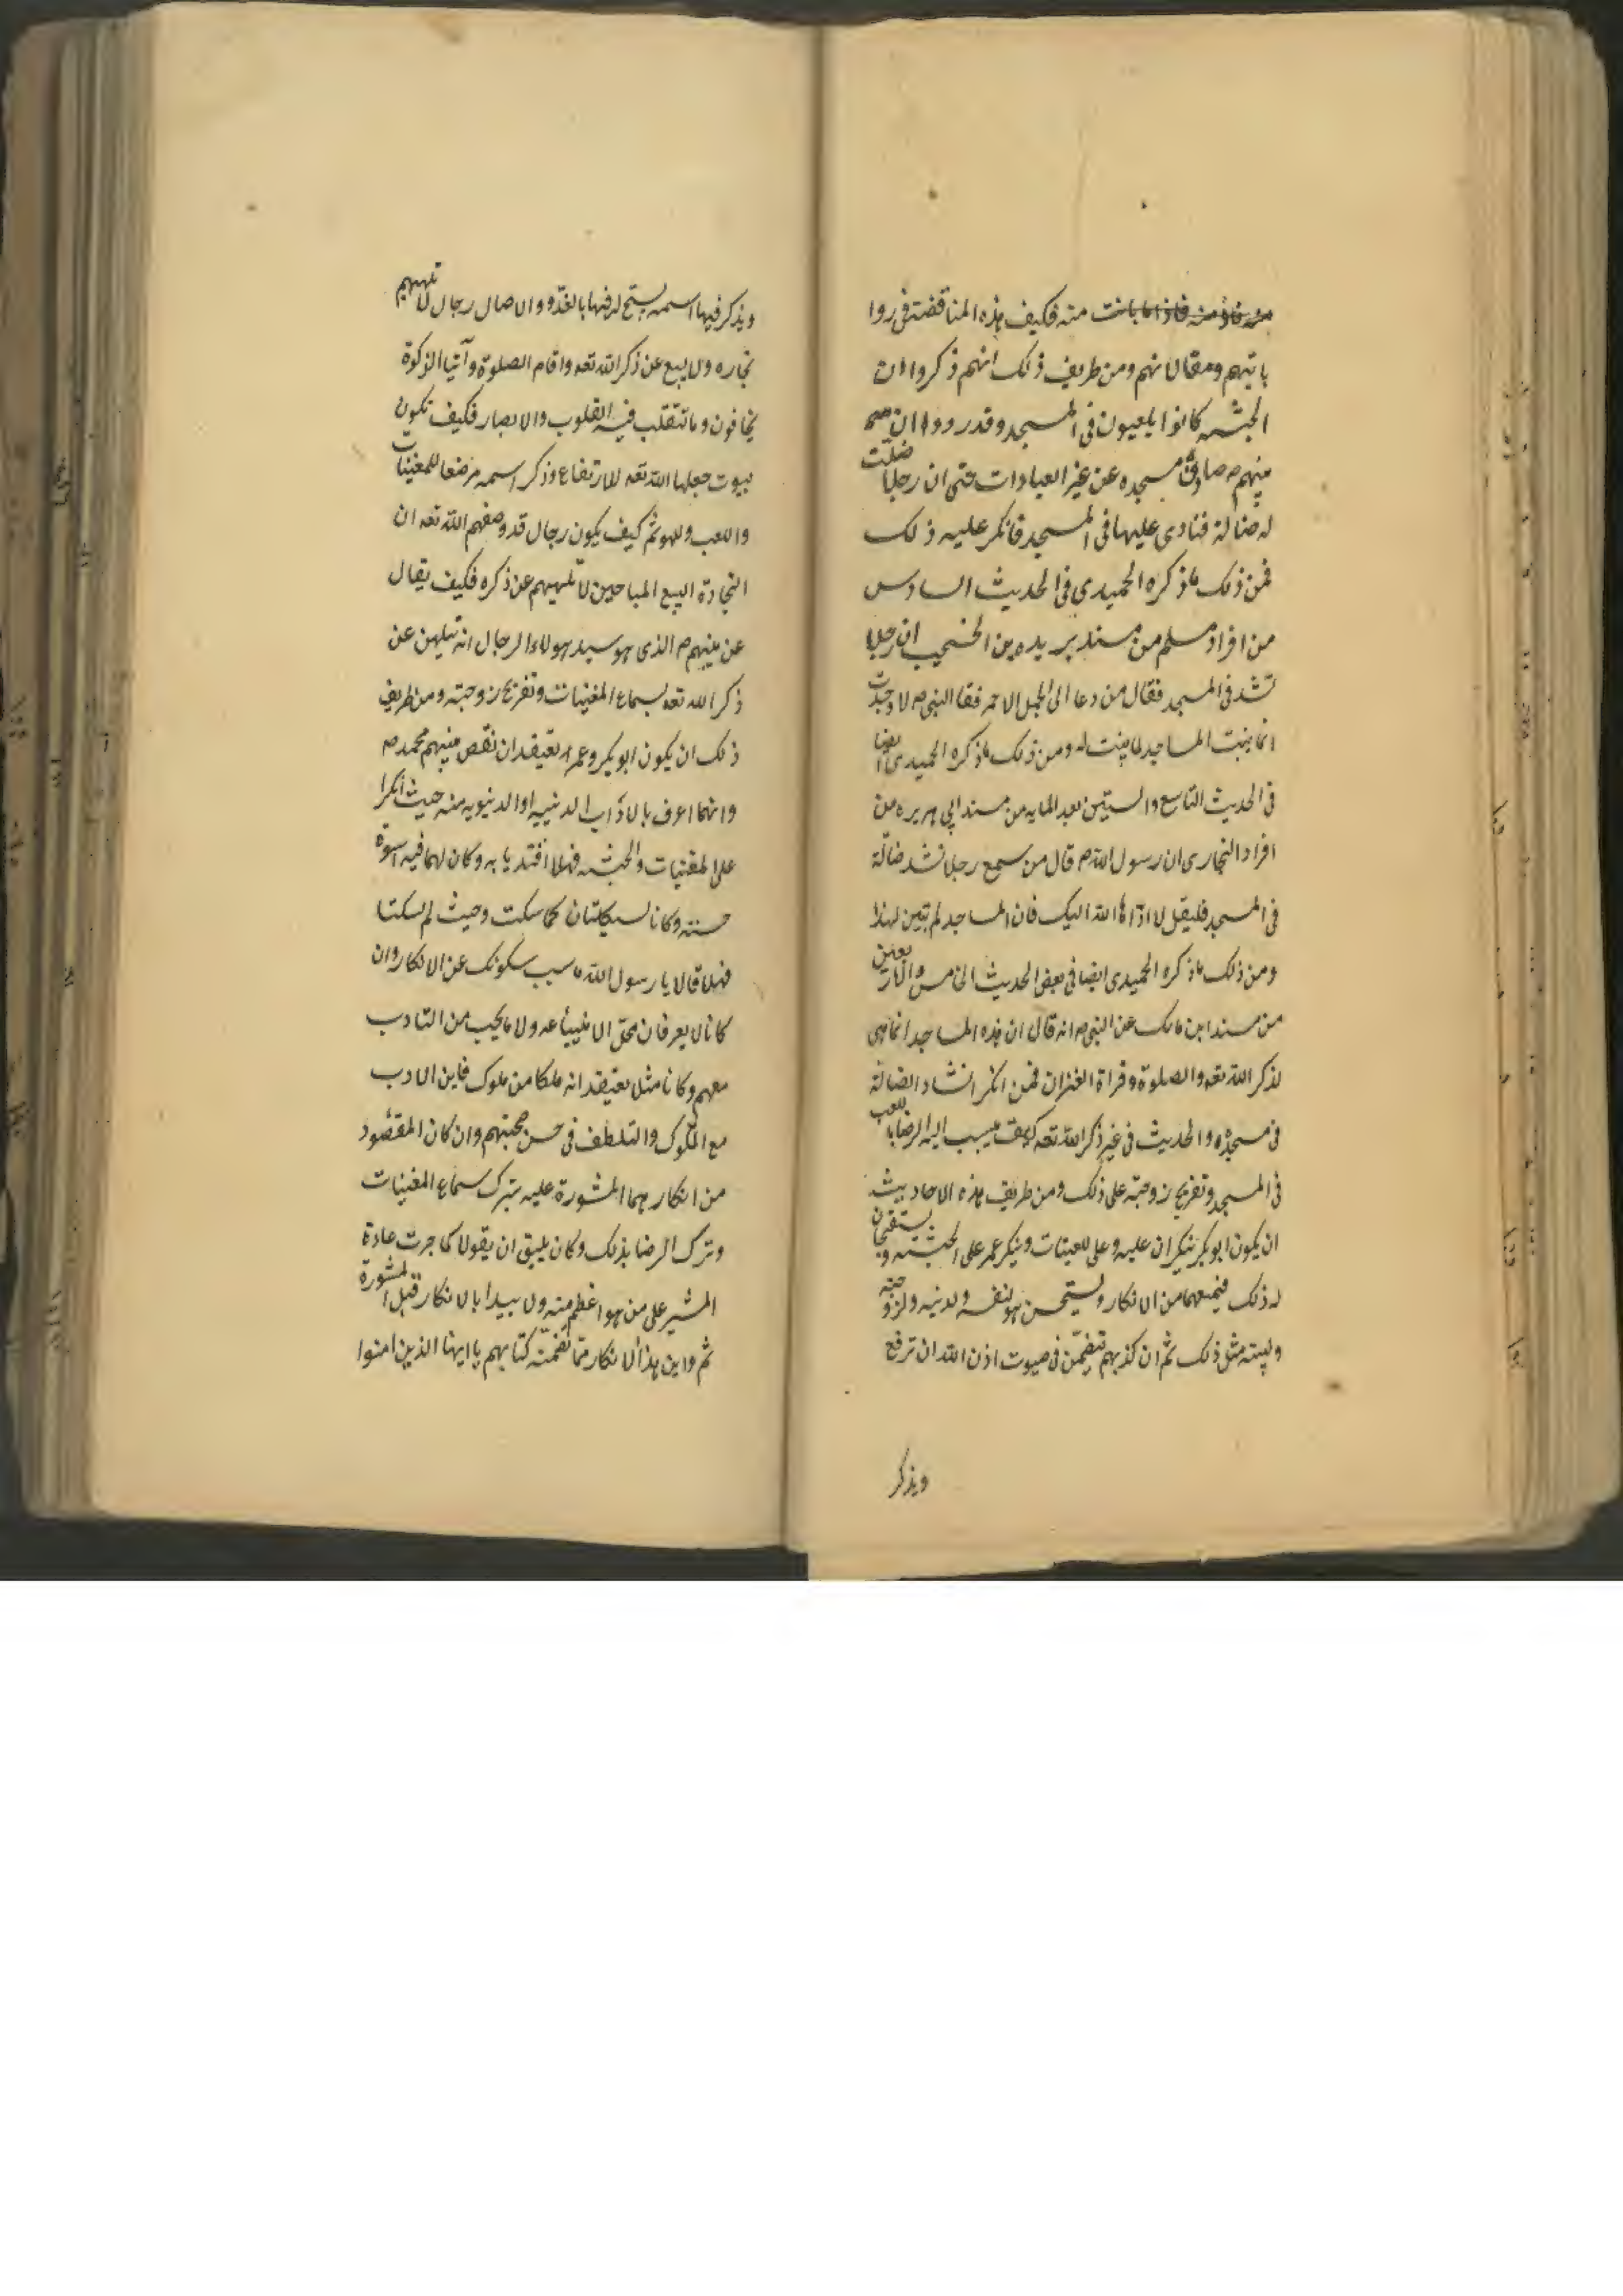 منه فكيف هذه المناقضة فى روا
ياتهم ومقالاتهم ومن طريف ذلك انهم ذكروا ان
الحبشه كانوا يلعبون فى المسجد وقد رووا ان
منيهم ص صان مسجده عن غير العبادات حتى ان رجلا ضلّت
له ضالة فنادى عليها فى المسجد فانكر عليه ذلك
فمن ذلك ما ذكره الحميدى فى الحديث السادس
من افراد مسلم من مسند بريده بن الخصيب ان رجلا
نشد فى المسجد فقال من دعا الى الجمل الاحمر فقا النبى ص لا وجدت
انما بنيت المساجد لما بنيت له ومن ذلك ما ذكره الحميدى ايضا
فى الحديث التاسع والستين بعد المايه من مسند ابى هريره من
افراد البخارى ان رسول الله ص قال من سمع رجلا نشد ضالّة
فى المسجد فليقل لا ادّاها الله اليك فان المساجد لم تبن لهذا
ومن ذلك ما ذكره الحميدى ايضا فى بعض الحديث الخامس والاربعين
من مسند ابن مالك عن النبى ص انه قال ان هذه المساجد انما هى
لذكر الله تعه والصلوة وقراة القران فمن انكر انشاد الضالّة
فى مسجده والحديث فى غير ذكر الله تعه كيف ينسب اليه الرضا باللعب
فى المسجد وتفريح زوجته على ذلك ومن طريف هذه الاحاديث
ان يكون ابو بكر ينكر ان عليه وعلى المغنيات وينكر عمر على الحبشه ويستقبحان
له ذلك فيمنعهما من الانكار ويستحسن هو لنفسه ولدينه ولزوجته
ولبيته مثل ذلك ثم ان كتابهم تتضمّن فى بيوت اذن الله ان ترفع
ويذكر
ويذكر فيها اسمه يسبّح له فيها بالغدّو والاصال رجال لا تلهيهم
تجاره ولا بيع عن ذكر الله تعه واقام الصلوة وآتيا الزكوة
يخافون وما تتقلب فيه القلوب والابصار فكيف تكون
بيوت جعلها الله تعه للارتفاع وذكر اسمه مرضعا للمغنيات
واللعب واللهو ثم كيف يكون رجال قد وصفهم الله تعه ان
التجارة البيع المباحين لا تلهيهم عن ذكره فكيف يقال
عن نبيهم ص الذى هو سيد هولاء الرجال انه تلهن عن
ذكر الله تعه بسماع المغنيات وتفريح زوجته ومن طريف
ذلك ان يكون ابو بكر وعمر يعتقدان نقص نبيهم محمد ص
وانهما اعرف بالاداب الدنييه او الدنيويه منه حيث انكرا
على المغنيات والحبشه فهلا اقتديا به وكان لهما فيه اسوة
حسنه وكانا يسكتان كما سكت وحيث لم يسكتا
فهلا قالا يا رسول الله ما سبب سكوتك عن الانكار وان
كانا لا يعرفان محلّ الانبياء ع ولا ما يجب من التادب
معهم وكانا مثل يعتقد انه ملكا من ملوك فاين الادب
مع الملوك والتلطف فى حسن صحبتهم وان كان المقصود
من انكارهما المشورة عليه بترك سماع المغنيات
وترك الرضا بذلك وكان يليق ان يقولا كما جرت عادة
المشير على من هو اعظم منه ولا يبدا بالانكار قبل المشورة
ثم واين هذا الانكار ممّا تضمنه كتابهم يا ايها الذين امنوا